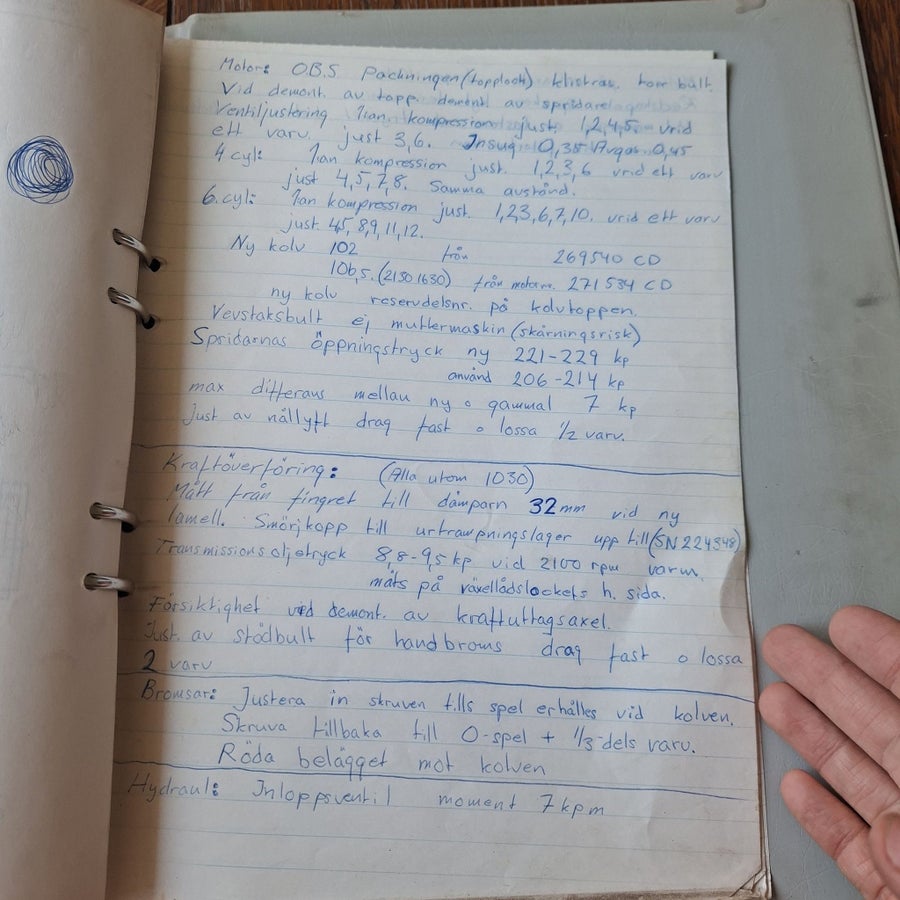 Motor: O.B.S Packningen (topplock) klistras, tom bult.
Vid demont. av topp. demont av spridare
Ventiljustering 1:an. kompression just. 1,2,4,5 vrid
ett varv. just 3,6. Insug 0,35 Avgas 0,45
4 cyl: 1:an kompression just. 1,2,3,6 vrid ett varv
just 4,5,7,8. Samma avstånd.
6.cyl: 1an kompression just. 1,2,3,6,7,10. vrid ett varv
just 4,5,8,9,11,12.
Ny kolv 102 från 269540 CD
106,5. (2130 1630) från motorn. 271534 CD
ny kolv reservdelsnr. på kolvtoppen.
Vevstaksbult ej muttermaskin (skärningsrisk)
Spridarnas öppningstryck ny 221-229 kp
använd 206-214 kp
max differans mellan ny o gammal 7 kp
Just av nållyft drag fast o lossa 1/2 varv.
Kraftöverföring: (Alla utom 1030)
Mått från fingret till dämparn 32mm vid ny
lamell. Smörjkopp till urtrampningslager upp till (SN 224348)
Transmissionsoljetryck 8,8-9,5 kp vid 2100 rpm varm.
mäts på växellådslockets h. sida.
Försiktighet vid demont. av kraftuttagsaxel.
Just. av stödbult för handbroms drag fast o lossa
2 varv
Bromsar: Justera in skruven tills spel erhålles vid kolven.
Skruva tillbaka till 0-spel + 1/3-dels varv.
Röda belägget mot kolven
Hydraul: Inloppsventil moment 7 kpm